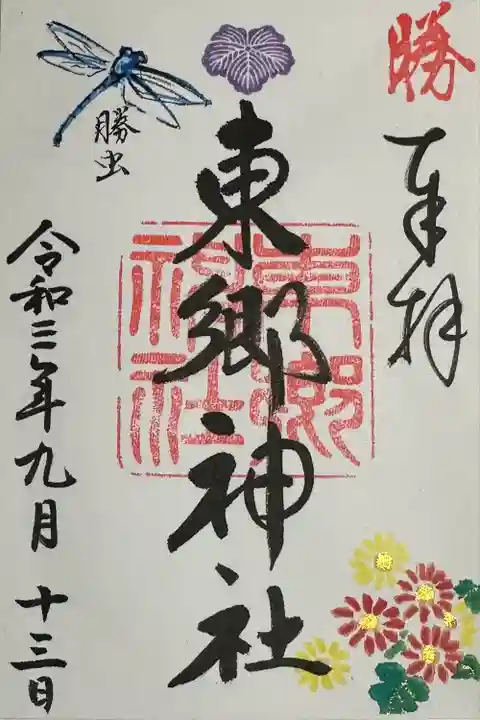 勝
奉拝
東郷神社
東郷神社
勝虫
令和三年九月十三日